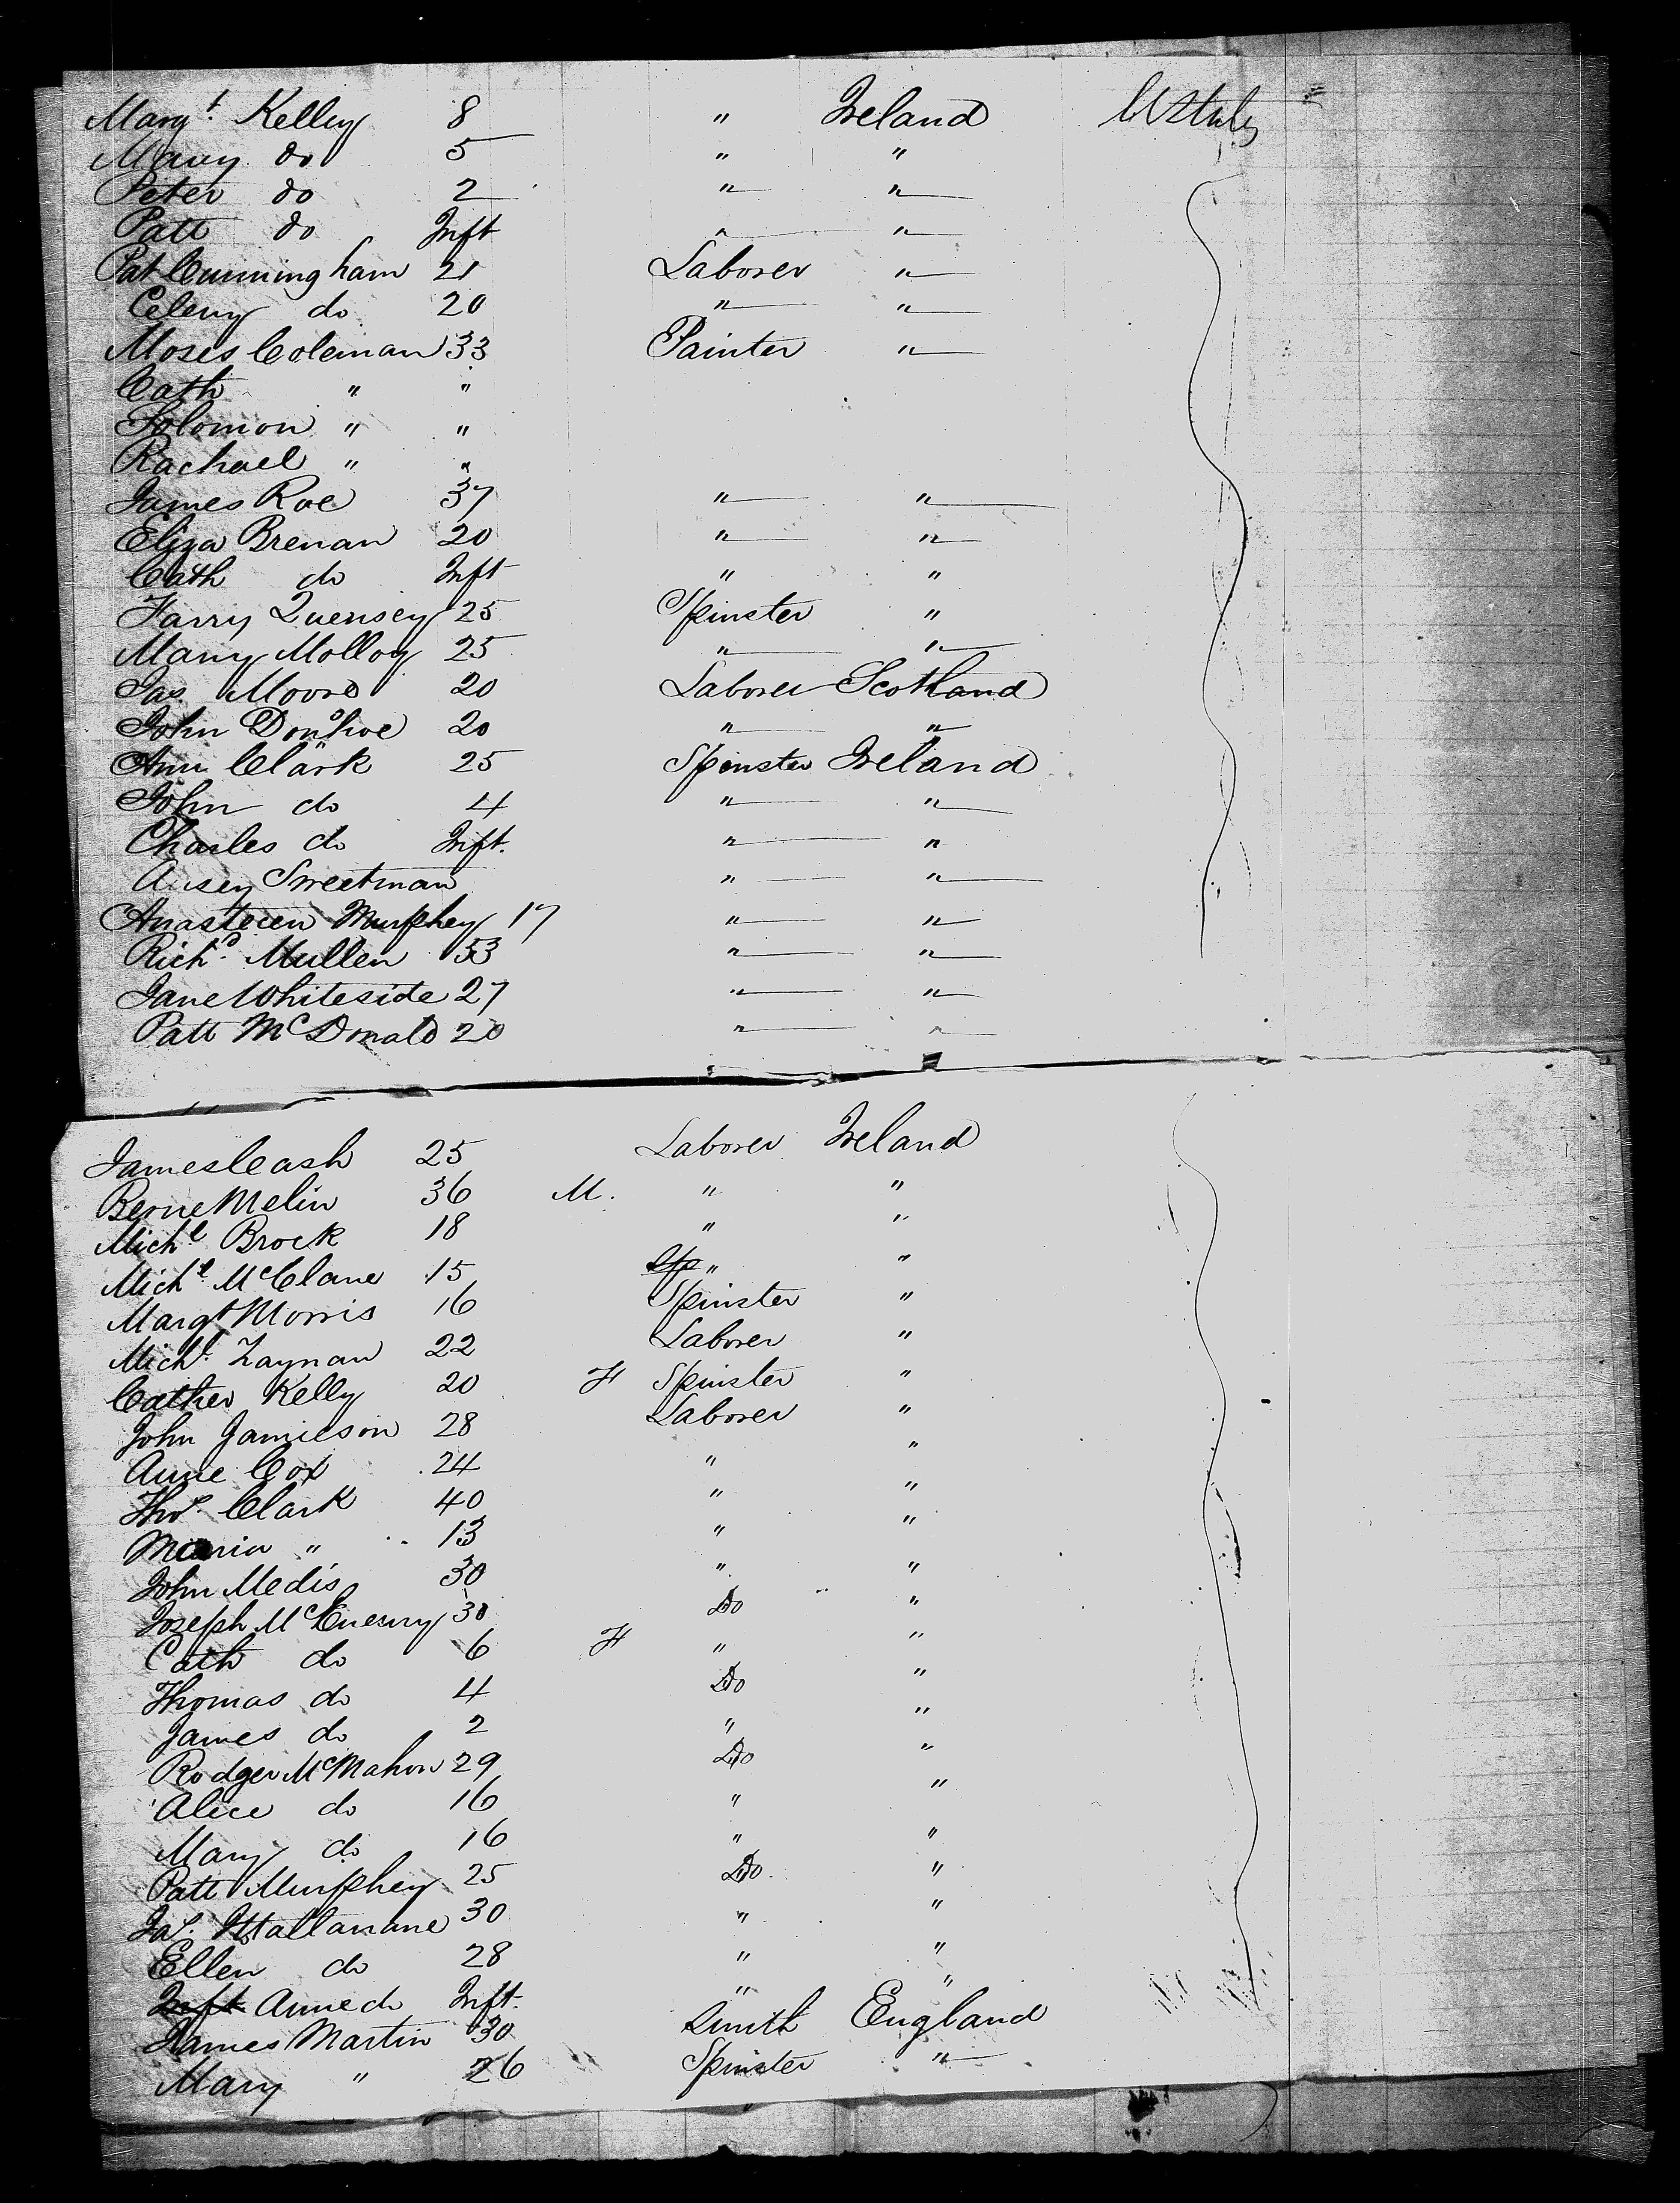 Margt. Kelley 8 " Ireland U States
Mary do 5 " "
Peter do 2 " "
Patt do Inft " "
Pat Cunningham 21 Laborer "
Celeny do 20 " "
Moses Coleman 33 Painter "
Cath " "
Solomon " "
Rachael " "
James Roe 37 " "
Eliza Brenan 20 " "
Cath do Inft " "
Farry Quensey 25 Spinster "
Mary Molloy 25 " "
Jas. Moore 20 Laborer Scotland
John Donohoe 20 " "
Ann Clark 25 Spinster Ireland
John do 4 " "
Charles do Inft. " "
Sweetman " "
Murphey 17 " "
Richd. Mullen 53 " "
Jane Whiteside 27 " "
Patt McDonald 20 " "
James Cash 25 Laborer Ireland
Berne Melin 36 M. " "
Michl Brock 18 " "
Michl McClane 15 Sp " "
Margt Morris 16 Spinster "
Michl. Zaynan 22 Laborer "
Cather Kelly 20 F Spinster "
John Jamieson 28 Laborer "
Anne Cox 24 " "
Thos. Clark 40 " "
Maria " 13 " "
John Medis 30 " "
Joseph 30 Do "
Cath do 6 F " "
Thomas do 4 Do "
James do 2 " "
Rodger McMahon 29 Do "
Alice do 16 " "
Mary do 16 " "
Patt Murphey 25 Do. "
Jas. 30 " "
Ellen do 28 " "
Inft Anne do Inft. " "
James Martin 30 Smith England
Mary " 26 Spinster "